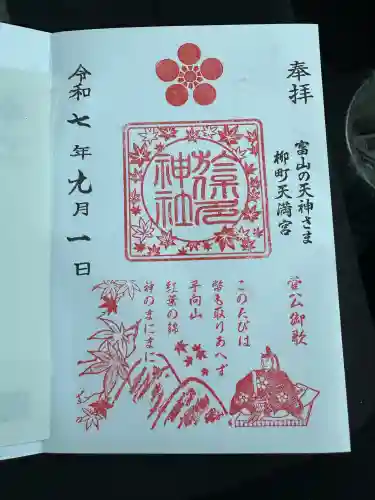 奉拝
富山の天神さま
柳町天満宮
於保多神社
令和七年九月一日
菅公御歌
このたびは
幣も取りあへず
手向山
紅葉の錦
神のまにまに